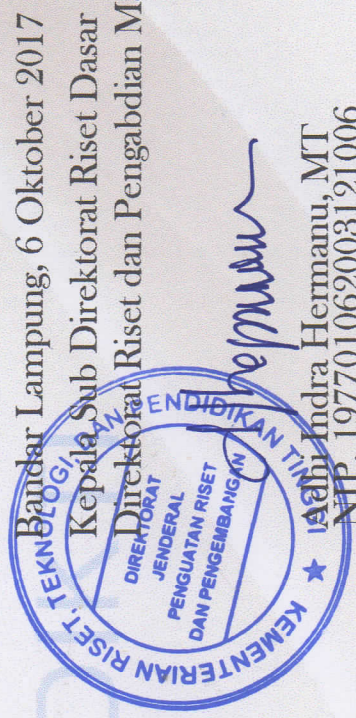 Bandar Lampung, 6 Oktober 2017
Kepala Sub Direktorat Riset Dasar
Direktorat Riset dan Pengabdian M
KEMENTERIAN RISET, TEKNOLOGI, DAN PENDIDIKAN TINGGI
DIREKTORAT
JENDERAL
PENGUATAN RISET
DAN PENGEMBANGAN
Adhi Indra Hermanu, MT
NIP. 197701062003121006